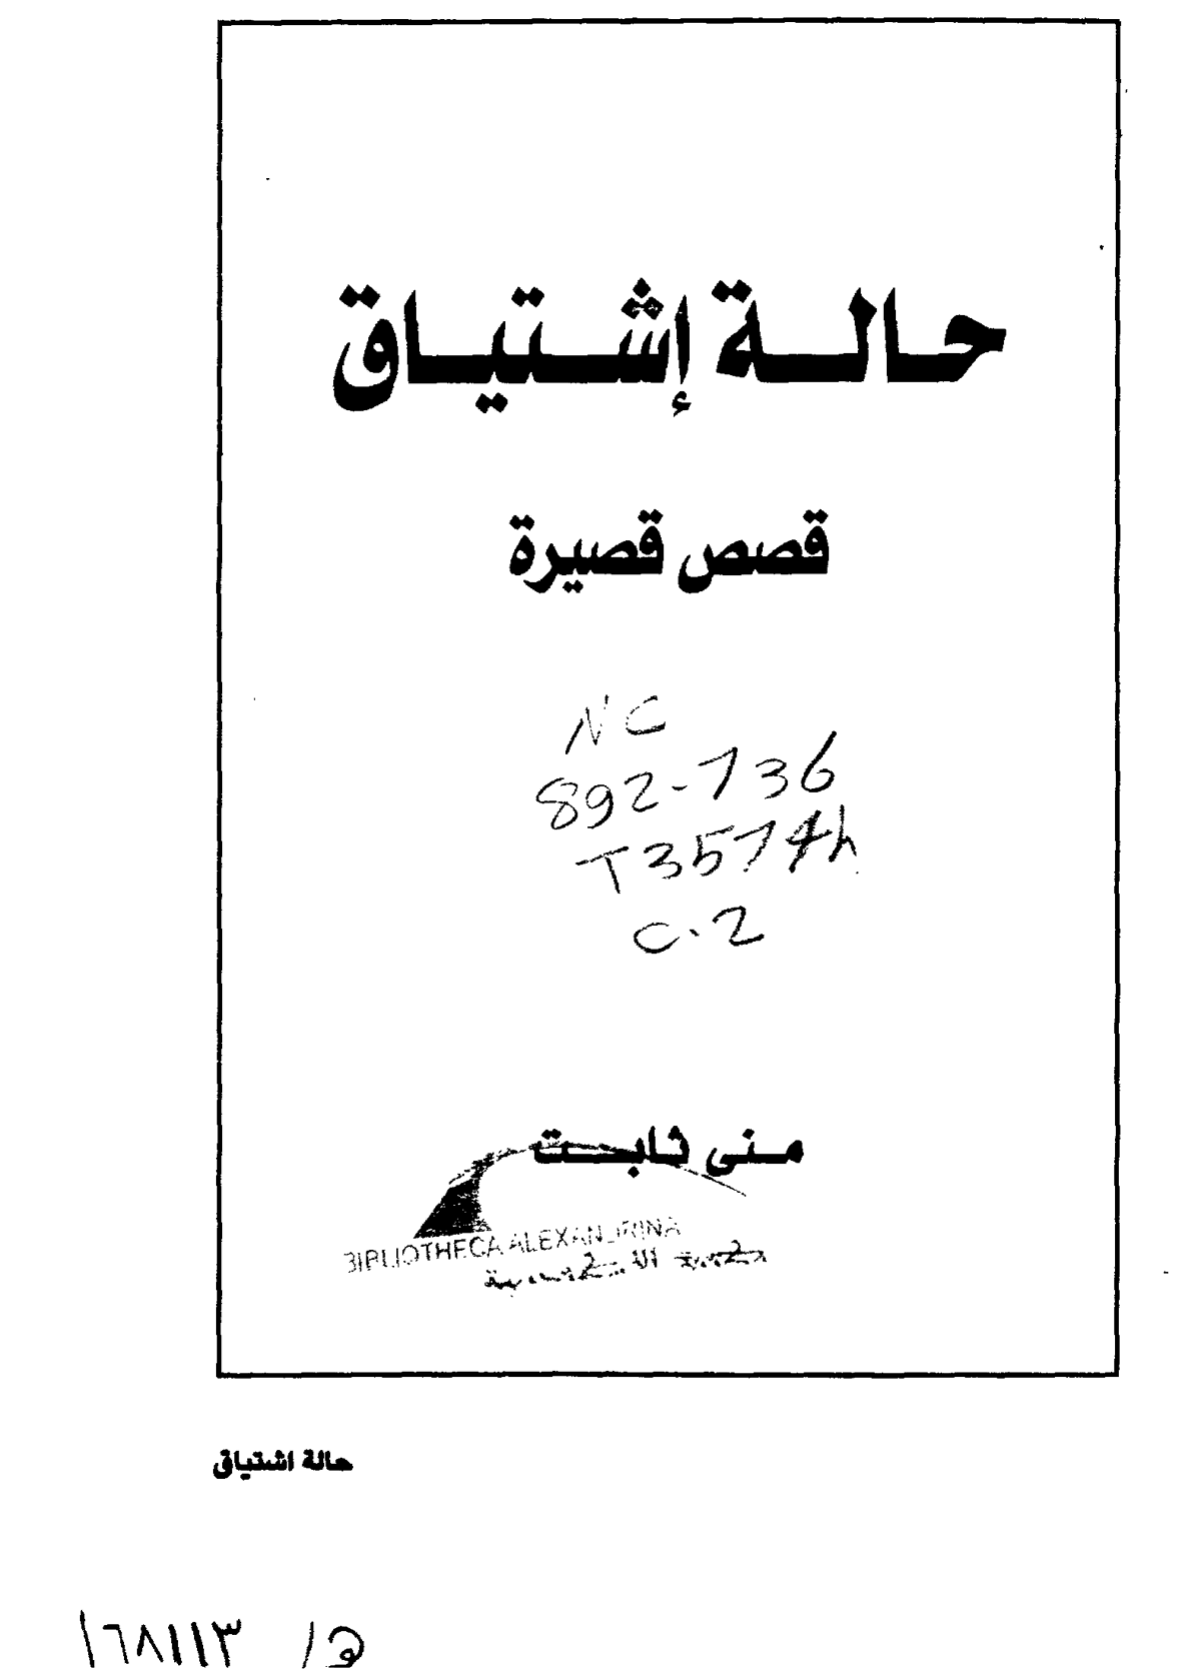 حالة إشتياق
قصص قصيرة
NC
892.736
T3574h
C.2
منى ثابت
BIBLIOTHECA ALEXANDRINA
حالة اشتياق
١٦٨١١٣